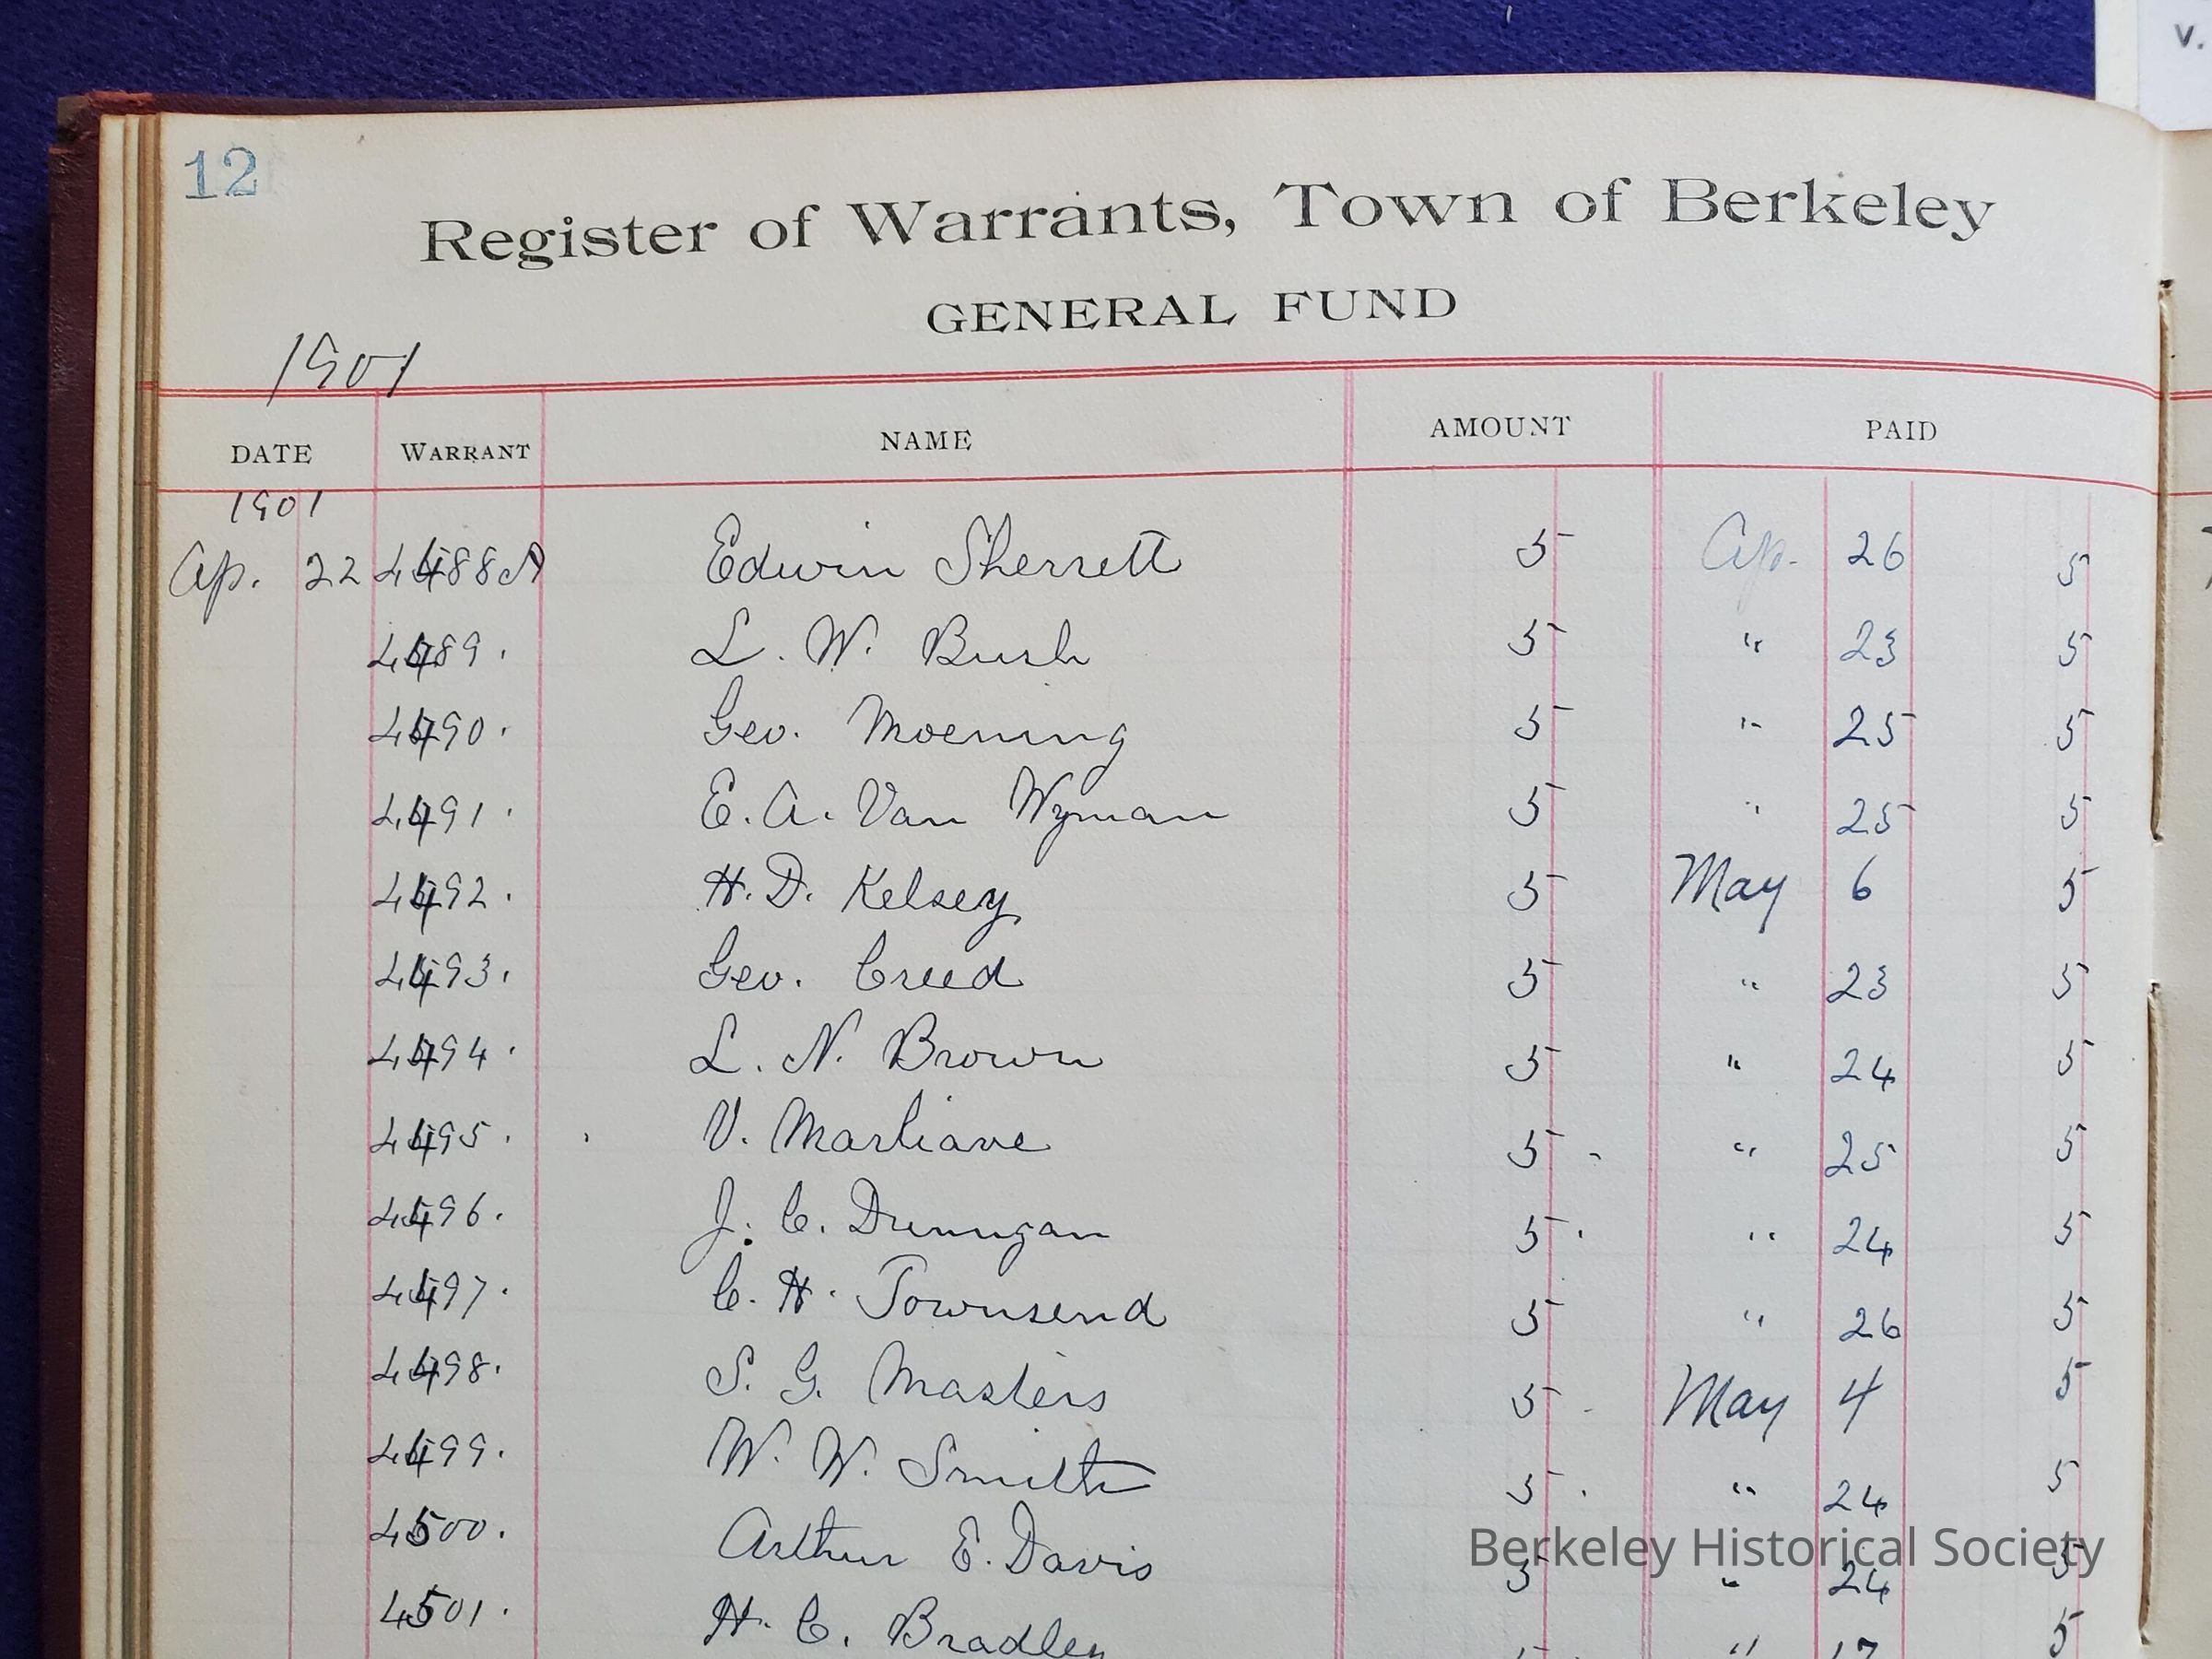 v.
12
Register of Warrants, Town of Berkeley
GENERAL FUND
1901
DATE WARRANT NAME AMOUNT PAID
1901
Ap. 22 4488A Edwin Sherrett 5 Ap. 26 5
4489. L. W. Bush 5 " 23 5
4490. Geo. Moening 5 " 25 5
4491. E. A. Van Wyman 5 " 25 5
4492. H. D. Kelsey 5 May 6 5
4493. Geo. Creed 5 " 23 5
4494. L. N. Brown 5 " 24 5
4495. V. Marliave 5 " 25 5
4496. J. C. Dunnigan 5 " 24 5
4497. C. H. Townsend 5 " 26 5
4498. S. G. Masters 5 May 4 5
4499. W. W. Smith 5 " 24 5
4500. Arthur E. Davis 5 " 24 5
4501. H. C. Bradley 5 " 17 5
Berkeley Historical Society